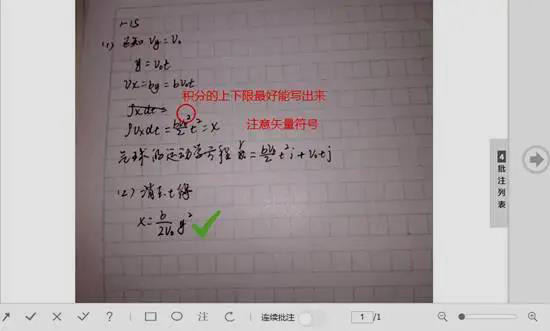 1-15
(1) 已知 Vy = V₀
y = V₀t
Vx = by = bV₀t
积分的上下限最好能写出来
∫Vxdt =
∫Vxdt = bV₀/2 t² = x
注意矢量符号
气球的运动学方程 r = bV₀/2 t² i + V₀t j
(2) 消去t得
x = b/2V₀ y²
4
批注列表
?
注
连续批注
1 /1